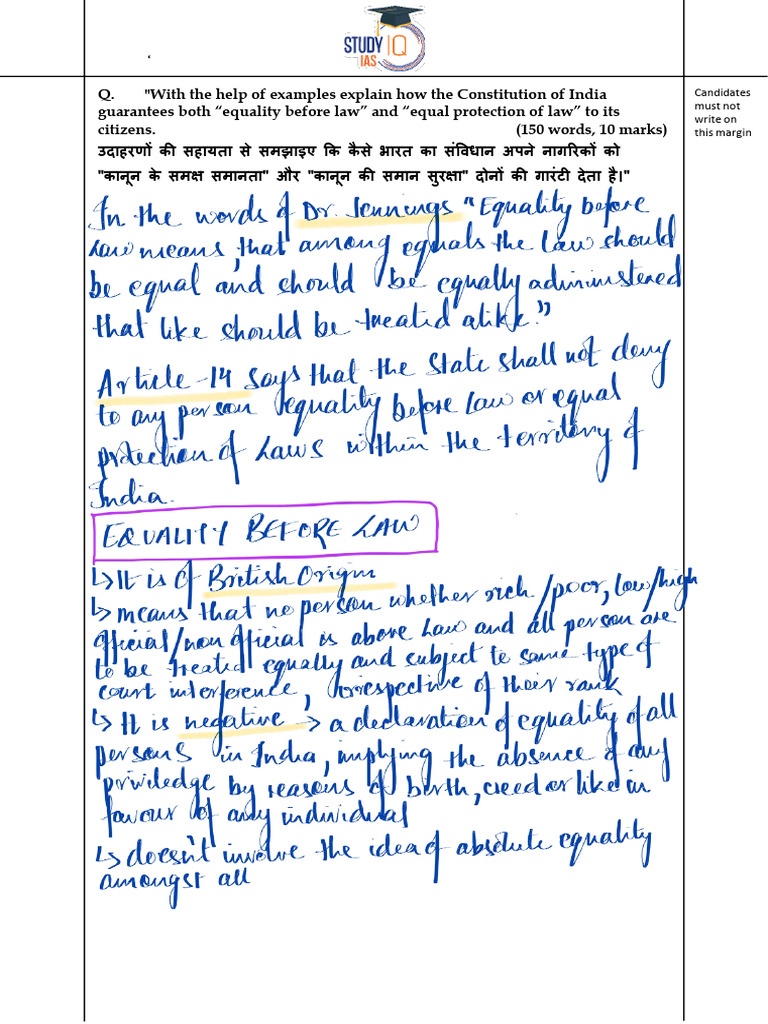 STUDY IQ
IAS
Q. "With the help of examples explain how the Constitution of India
guarantees both “equality before law” and “equal protection of law” to its
citizens. (150 words, 10 marks)
उदाहरणों की सहायता से समझाइए कि कैसे भारत का संविधान अपने नागरिकों को
"कानून के समक्ष समानता" और "कानून की समान सुरक्षा" दोनों की गारंटी देता है।"
Candidates
must not
write on
this margin
In the words of Dr. Jennings "Equality before
Law means, that among equals the law should
be equal and should be equally administered
that like should be treated alike."
Article-14 says that the State shall not deny
to any person equality before law or equal
protection of Laws within the territory of
India.
EQUALITY BEFORE LAW
↳ It is of British Origin
↳ means that no person whether rich/poor, low/high
official/non official is above Law and all person are
to be treated equally and subject to same type of
court interference, irrespective of their rank
↳ It is negative → a declaration of equality of all
persons in India, implying the absence of any
priviledge by reasons of birth, creed or like in
favour of any individual
↳ doesn't involve the idea of absolute equality
amongst all